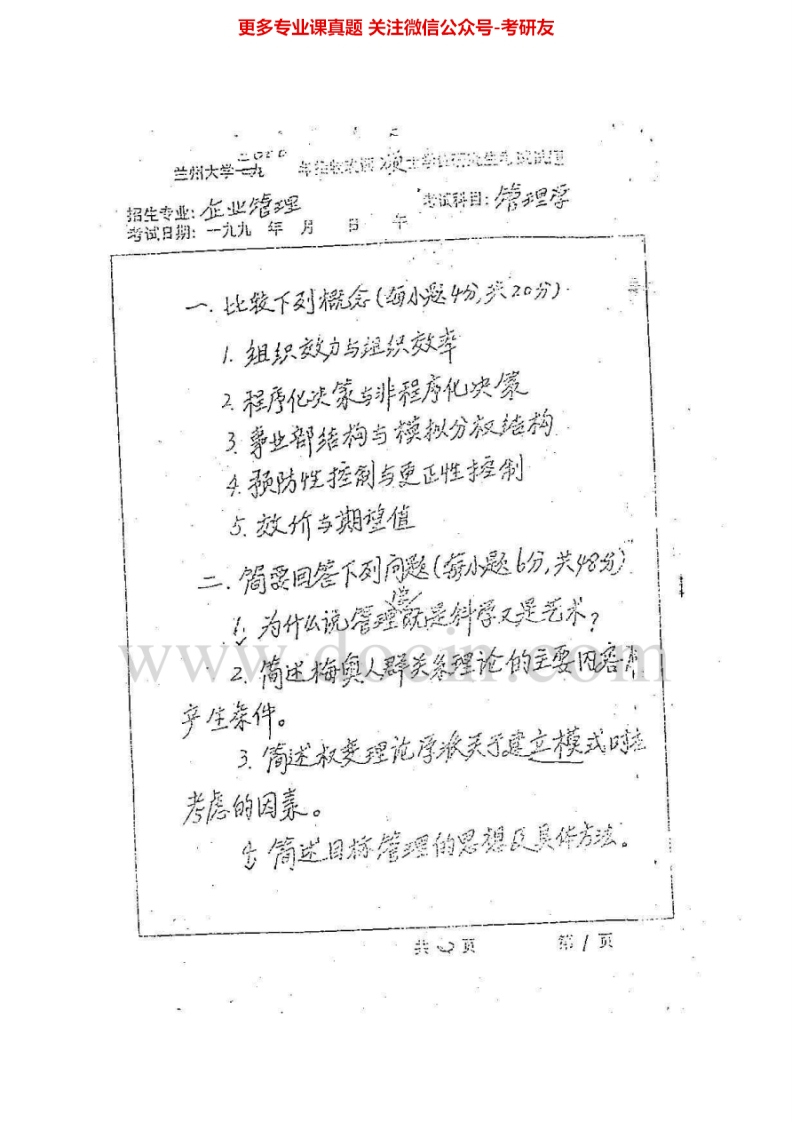 更多专业课真题 关注微信公众号-考研友
兰州大学一九 2000 年招收攻读硕士学位研究生考试试题
招生专业: 企业管理 考试科目: 管理学
考试日期: 一九九 年 月 日 午
一. 比较下列概念(每小题4分,共20分)
1. 组织效力与组织效率
2. 程序化决策与非程序化决策
3. 事业部结构与模拟分权结构
4. 预防性控制与更正性控制
5. 效价与期望值
二. 简要回答下列问题(每小题6分,共48分)
1. 为什么说管理既是科学又是艺术?
www.docin.com
2. 简述梅奥人群关系理论的主要内容和
产生条件。
3. 简述权变理论学派关于建立模式时应
考虑的因素。
4. 简述目标管理的思想及具体方法。
共 2 页 第 1 页